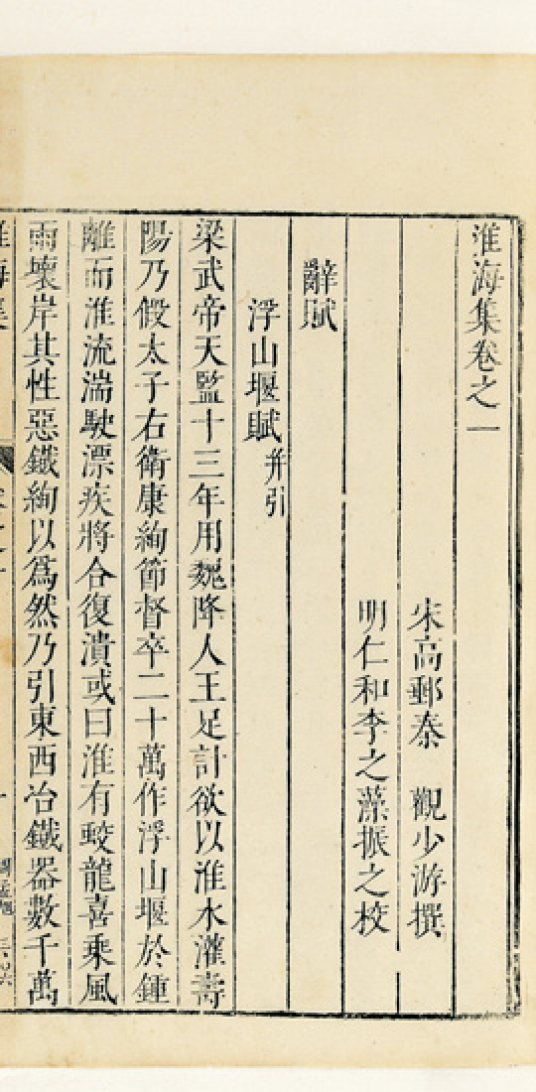 淮海集卷之一
宋高郵秦　觀少游撰
明仁和李之藻振之校
辭賦
浮山堰賦并引
梁武帝天監十三年用魏降人王足計欲以淮水灌壽
陽乃假太子右衛康絢節督卒二十萬作浮山堰於鍾
離而淮流湍駛漂疾將合復潰或曰淮有蛟龍喜乘風
雨壞岸其性惡鐵絢以爲然乃引東西冶鐵器數千萬
淮海集